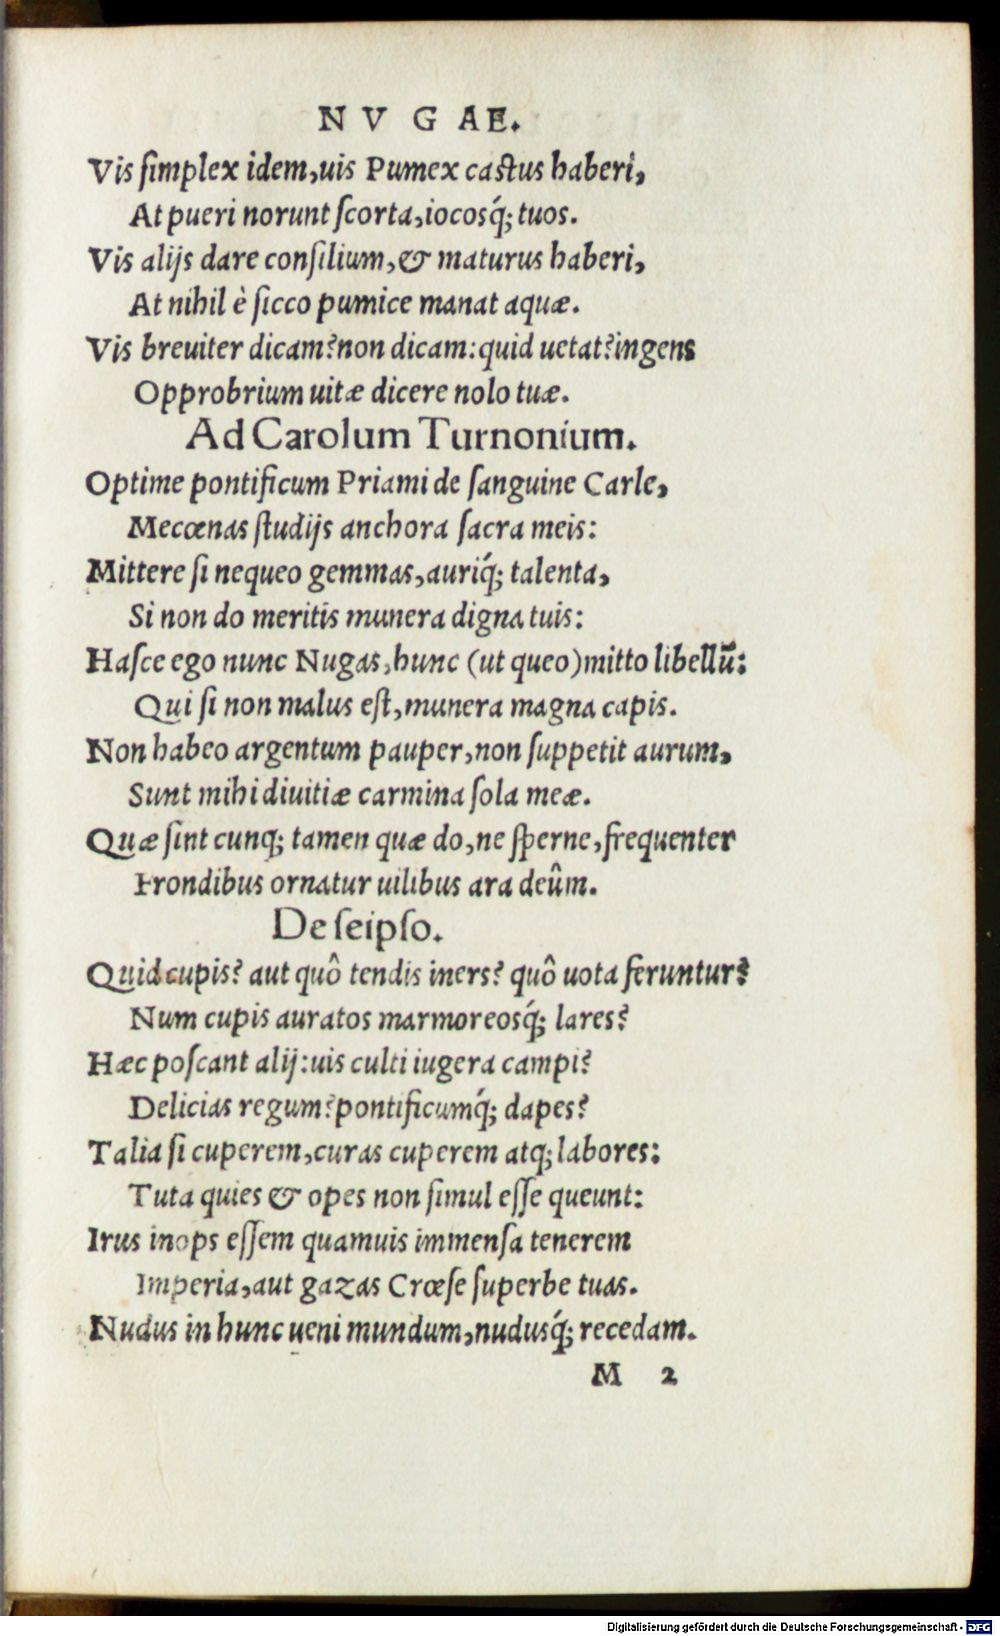 N V G AE.
Vis ſimplex idem, uis Pumex caſtus haberi,
At pueri norunt ſcorta, iocosq́; tuos.
Vis alijs dare conſilium, & maturus haberi,
At nihil è ſicco pumice manat aquæ.
Vis breuiter dicam? non dicam: quid uetat? ingens
Opprobrium uitæ dicere nolo tuæ.
Ad Carolum Turnonium.
Optime pontificum Priami de ſanguine Carle,
Mecœnas ſtudijs anchora ſacra meis:
Mittere ſi nequeo gemmas, auriq́; talenta,
Si non do meritis munera digna tuis:
Haſce ego nunc Nugas, hunc (ut queo) mitto libellũ:
Qui ſi non malus eſt, munera magna capis.
Non habeo argentum pauper, non ſuppetit aurum,
Sunt mihi diuitiæ carmina ſola meæ.
Quæ ſint cunq; tamen quæ do, ne ſperne, frequenter
Frondibus ornatur uilibus ara deûm.
De ſeipſo.
Quid cupis? aut quô tendis iners? quô uota feruntur?
Num cupis auratos marmoreosq́; lares?
Hæc poſcant alij: uis culti iugera campi?
Delicias regum? pontificumq́; dapes?
Talia ſi cuperem, curas cuperem atq; labores:
Tuta quies & opes non ſimul eſſe queunt:
Irus inops eſſem quamuis immenſa tenerem
Imperia, aut gazas Crœſe ſuperbe tuas.
Nudus in hunc ueni mundum, nudusq́; recedam.
M 2
Digitalisierung gefördert durch die Deutsche Forschungsgemeinschaft - DFG